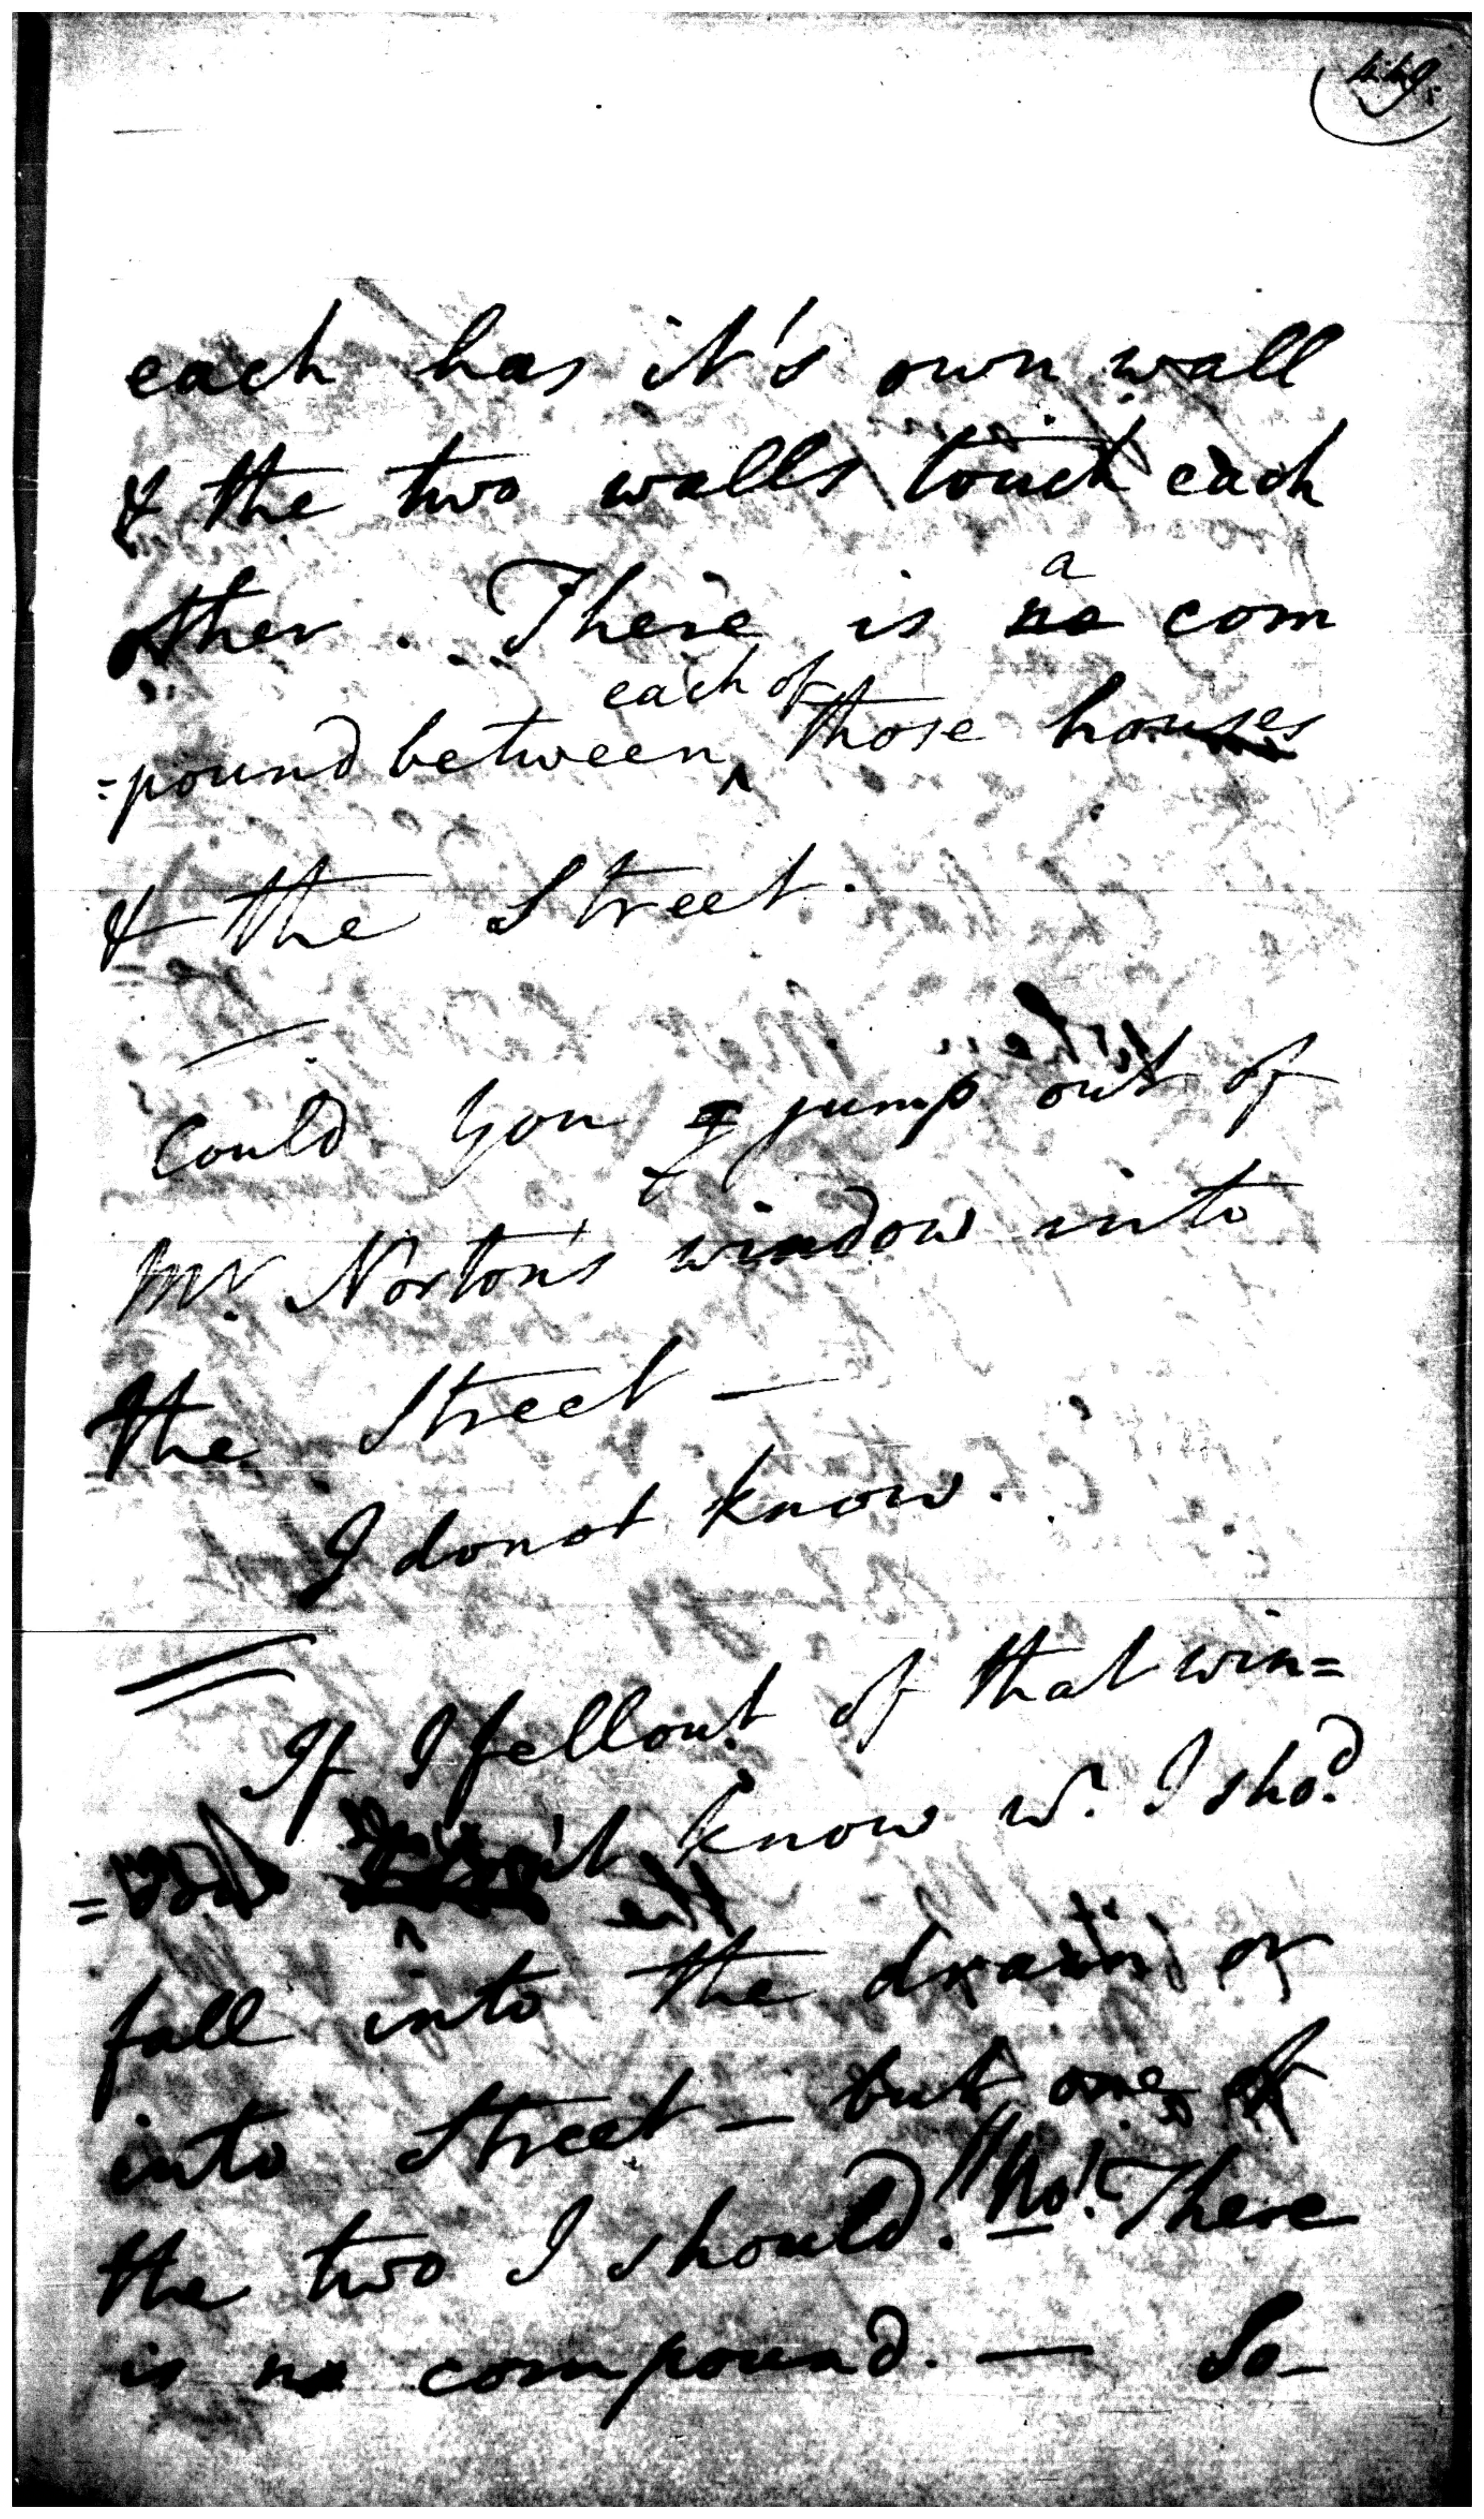 449.
each has it's own wall
& the two walls touch each
other. There is a no com
=pound between each of those houses
& the Street.
Could you jump out of
Mr. Norton's window into
the Street —
I do not know.
If I fell out of that win=
=dow don't know wr. I shod.
fall into the drain or
into Street — but one of
the two I should. "No". There
is no compound. — So-